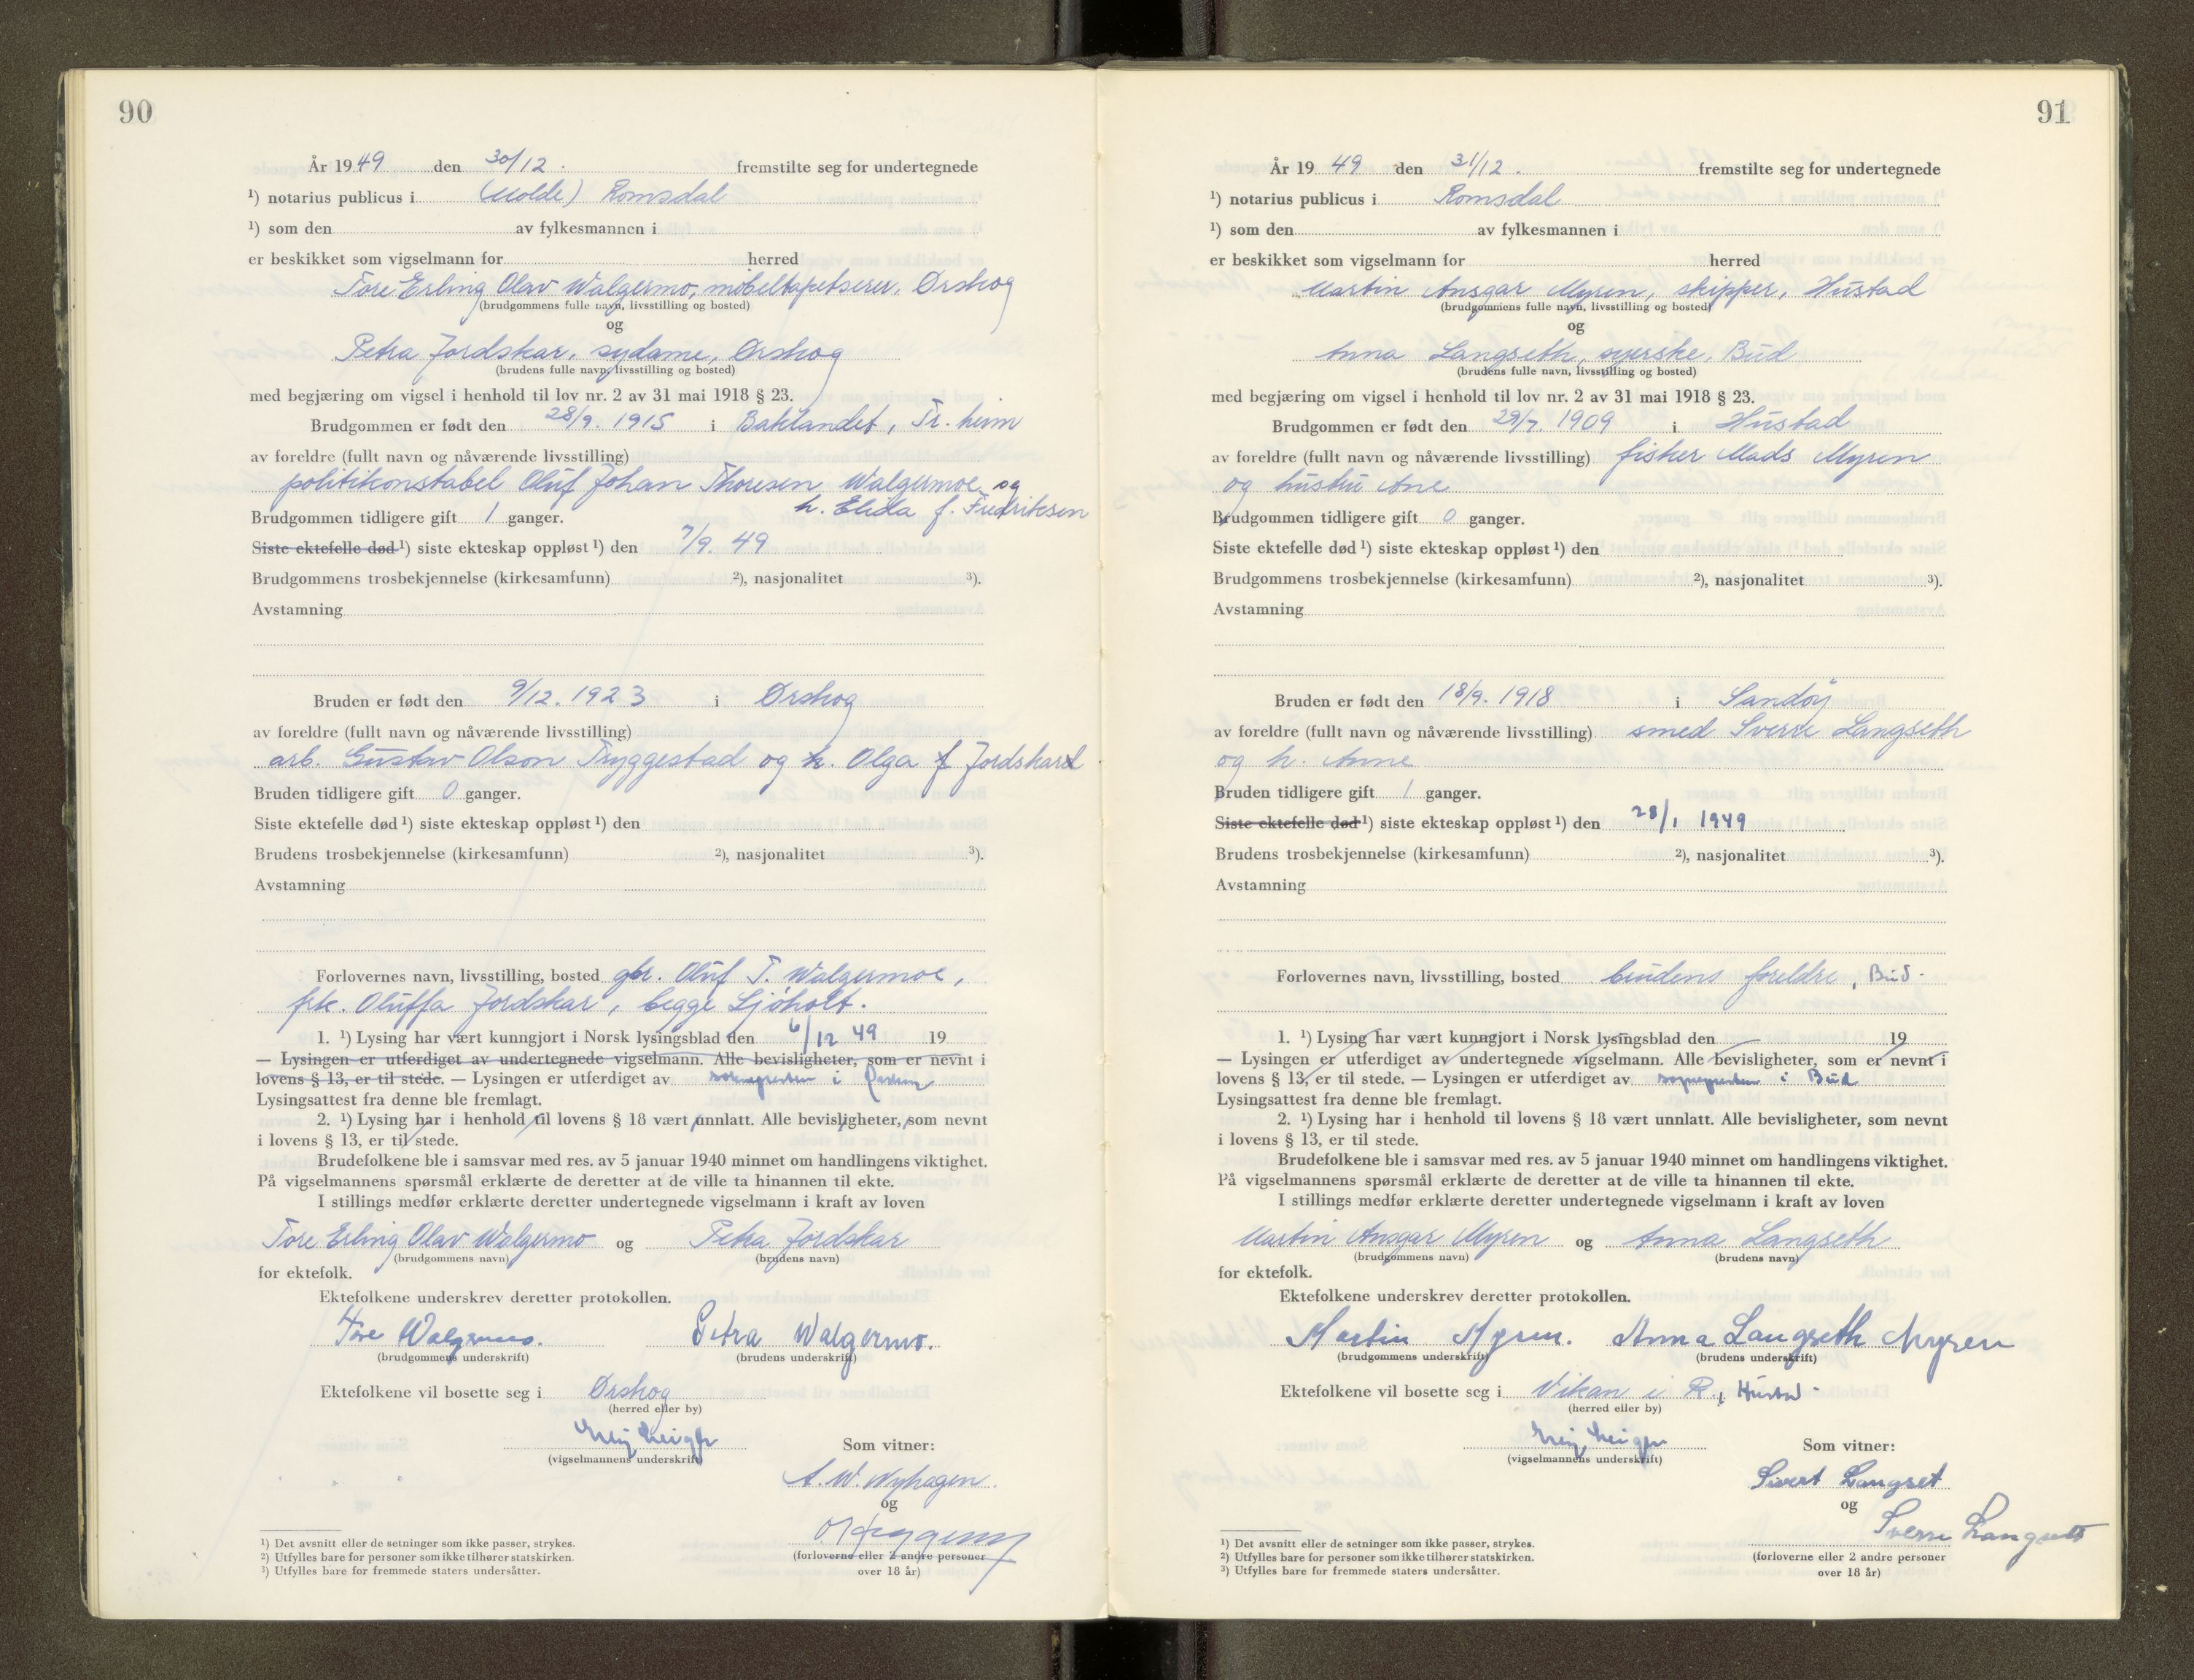 90
År 1949 den 30/12. fremstilte seg for undertegnede
¹) notarius publicus i (Molde) Romsdal
¹) som den av fylkesmannen i
er beskikket som vigselmann for herred
Tore Erling Olav Walgermo, møbeltapetserer, Ørskog
(brudgommens fulle navn, livsstilling og bosted)
og
Petra Jordskar, sydame, Ørskog
(brudens fulle navn, livsstilling og bosted)
med begjæring om vigsel i henhold til lov nr. 2 av 31 mai 1918 § 23.
Brudgommen er født den 28/9. 1915 i Baklandet, Tr.heim
av foreldre (fullt navn og nåværende livsstilling)
politikonstabel Oluf Johan Thoresen Walgermoe og
h. Elida f. Fredriksen
Brudgommen tidligere gift 1 ganger.
Siste ektefelle død ¹) siste ekteskap oppløst ¹) den 7/9. 49
Brudgommens trosbekjennelse (kirkesamfunn) ²), nasjonalitet ³).
Avstamning
Bruden er født den 9/12. 1923 i Ørskog
av foreldre (fullt navn og nåværende livsstilling)
arb. Gustav Olson Tryggestad og h. Olga f Jordskard
Bruden tidligere gift 0 ganger.
Siste ektefelle død ¹) siste ekteskap oppløst ¹) den
Brudens trosbekjennelse (kirkesamfunn) ²), nasjonalitet ³).
Avstamning
Forlovernes navn, livsstilling, bosted gbr. Oluf T. Walgermoe,
frk. Oluffa Jordskar, begge Sjøholt.
1. ¹) Lysing har vært kunngjort i Norsk lysingsblad den 6/12 49 19
— Lysingen er utferdiget av undertegnede vigselmann. Alle bevisligheter, som er nevnt i
lovens § 13, er til stede. — Lysingen er utferdiget av soknepresten i
Lysingsattest fra denne ble fremlagt.
2. ¹) Lysing har i henhold til lovens § 18 vært unnlatt. Alle bevisligheter, som nevnt
i lovens § 13, er til stede.
Brudefolkene ble i samsvar med res. av 5 januar 1940 minnet om handlingens viktighet.
På vigselmannens spørsmål erklærte de deretter at de ville ta hinannen til ekte.
I stillings medfør erklærte deretter undertegnede vigselmann i kraft av loven
Tore Erling Olav Walgermo og Petra Jordskar
(brudgommens navn) (brudens navn)
for ektefolk.
Ektefolkene underskrev deretter protokollen.
Tore Walgermo. Petra Walgermo.
(brudgommens underskrift) (brudens underskrift)
Ektefolkene vil bosette seg i Ørskog
(herred eller by)
(vigselmannens underskrift)
Som vitner:
A. W. Nyhagen
og
(forloverne eller 2 andre personer
over 18 år)
¹) Det avsnitt eller de setninger som ikke passer, strykes.
²) Utfylles bare for personer som ikke tilhører statskirken.
³) Utfylles bare for fremmede staters undersåtter.
91
År 1949 den 31/12. fremstilte seg for undertegnede
¹) notarius publicus i Romsdal
¹) som den av fylkesmannen i
er beskikket som vigselmann for herred
Martin Ansgar Myren, skipper, Hustad
(brudgommens fulle navn, livsstilling og bosted)
og
Anna Langseth, syerske, Bud
(brudens fulle navn, livsstilling og bosted)
med begjæring om vigsel i henhold til lov nr. 2 av 31 mai 1918 § 23.
Brudgommen er født den 29/7. 1909 i Hustad
av foreldre (fullt navn og nåværende livsstilling) fisker Mads Myren
og hustru Ane
Brudgommen tidligere gift 0 ganger.
Siste ektefelle død ¹) siste ekteskap oppløst ¹) den
Brudgommens trosbekjennelse (kirkesamfunn) ²), nasjonalitet ³).
Avstamning
Bruden er født den 18/9. 1918 i Sandøy
av foreldre (fullt navn og nåværende livsstilling) smed Sverre Langseth
og h. Anne
Bruden tidligere gift 1 ganger.
Siste ektefelle død ¹) siste ekteskap oppløst ¹) den 28/1 1949
Brudens trosbekjennelse (kirkesamfunn) ²), nasjonalitet ³).
Avstamning
Forlovernes navn, livsstilling, bosted brudens foreldre, Bud.
1. ¹) Lysing har vært kunngjort i Norsk lysingsblad den 19
— Lysingen er utferdiget av undertegnede vigselmann. Alle bevisligheter, som er nevnt i
lovens § 13, er til stede. — Lysingen er utferdiget av sognepresten i Bud
Lysingsattest fra denne ble fremlagt.
2. ¹) Lysing har i henhold til lovens § 18 vært unnlatt. Alle bevisligheter, som nevnt
i lovens § 13, er til stede.
Brudefolkene ble i samsvar med res. av 5 januar 1940 minnet om handlingens viktighet.
På vigselmannens spørsmål erklærte de deretter at de ville ta hinannen til ekte.
I stillings medfør erklærte deretter undertegnede vigselmann i kraft av loven
Martin Ansgar Myren og Anna Langseth
(brudgommens navn) (brudens navn)
for ektefolk.
Ektefolkene underskrev deretter protokollen.
Martin Myren. Anna Langseth Myren
(brudgommens underskrift) (brudens underskrift)
Ektefolkene vil bosette seg i Vikan i R., Hustad.
(herred eller by)
(vigselmannens underskrift)
Som vitner:
Sivert Langset
og
Sverre Langseth
(forloverne eller 2 andre personer
over 18 år)
¹) Det avsnitt eller de setninger som ikke passer, strykes.
²) Utfylles bare for personer som ikke tilhører statskirken.
³) Utfylles bare for fremmede staters undersåtter.